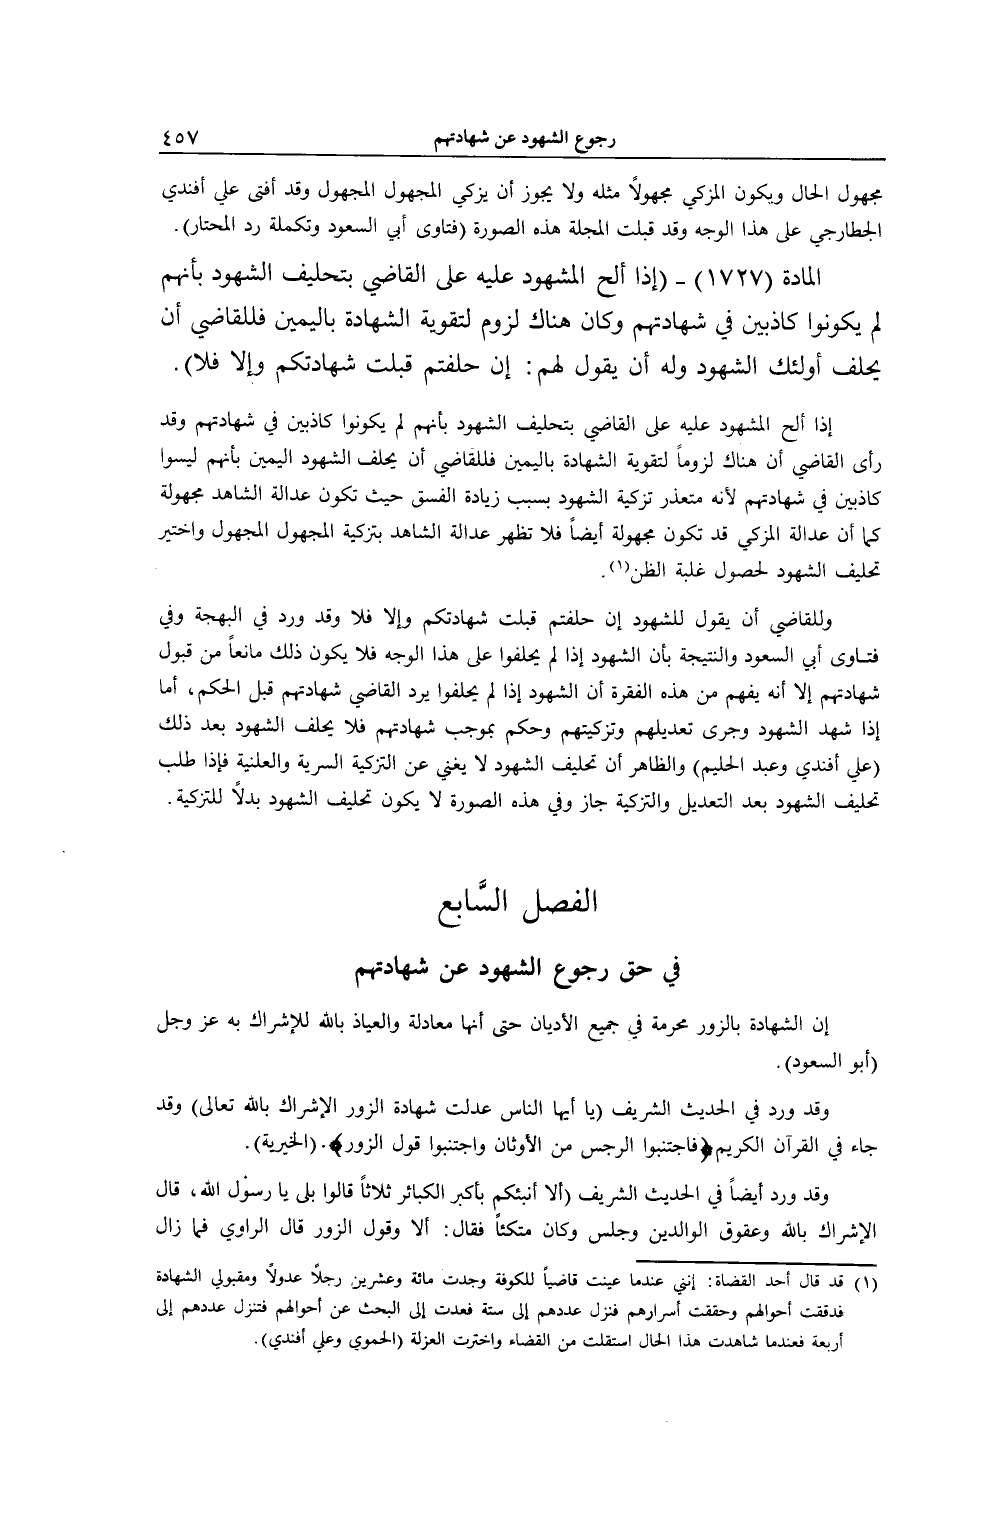 رجوع الشهود عن شهادتهم ٤٥٧
مجهول الحال ويكون المزكي مجهولاً مثله ولا يجوز أن يزكي المجهول المجهول وقد أفتى علي أفندي
الجطارجي على هذا الوجه وقد قبلت المجلة هذه الصورة (فتاوى أبي السعود وتكملة رد المحتار).
المادة (١٧٢٧) - (إذا ألح المشهود عليه على القاضي بتحليف الشهود بأنهم
لم يكونوا كاذبين في شهادتهم وكان هناك لزوم لتقوية الشهادة باليمين فللقاضي أن
يحلف أولئك الشهود وله أن يقول لهم: إن حلفتم قبلت شهادتكم وإلا فلا).
إذا ألح المشهود عليه على القاضي بتحليف الشهود بأنهم لم يكونوا كاذبين في شهادتهم وقد
رأى القاضي أن هناك لزوماً لتقوية الشهادة باليمين فللقاضي أن يحلف الشهود اليمين بأنهم ليسوا
كاذبين في شهادتهم لأنه متعذر تزكية الشهود بسبب زيادة الفسق حيث تكون عدالة الشاهد مجهولة
كما أن عدالة المزكي قد تكون مجهولة أيضاً فلا تظهر عدالة الشاهد بتزكية المجهول المجهول واختير
تحليف الشهود لحصول غلبة الظن(١).
وللقاضي أن يقول للشهود إن حلفتم قبلت شهادتكم وإلا فلا وقد ورد في البهجة وفي
فتاوى أبي السعود والنتيجة بأن الشهود إذا لم يحلفوا على هذا الوجه فلا يكون ذلك مانعاً من قبول
شهادتهم إلا أنه يفهم من هذه الفقرة أن الشهود إذا لم يحلفوا يرد القاضي شهادتهم قبل الحكم، أما
إذا شهد الشهود وجرى تعديلهم وتزكيتهم وحكم بموجب شهادتهم فلا يحلف الشهود بعد ذلك
(علي أفندي وعبد الحليم) والظاهر أن تحليف الشهود لا يغني عن التزكية السرية والعلنية فإذا طلب
تحليف الشهود بعد التعديل والتزكية جاز وفي هذه الصورة لا يكون تحليف الشهود بدلاً للتزكية.
الفصل السَّابع
في حق رجوع الشهود عن شهادتهم
إن الشهادة بالزور محرمة في جميع الأديان حتى أنها معادلة والعياذ بالله للإشراك به عز وجل
(أبو السعود).
وقد ورد في الحديث الشريف (يا أيها الناس عدلت شهادة الزور الإشراك بالله تعالى) وقد
جاء في القرآن الكريم ﴿فاجتنبوا الرجس من الأوثان واجتنبوا قول الزور﴾. (الخيرية).
وقد ورد أيضاً في الحديث الشريف (ألا أنبئكم بأكبر الكبائر ثلاثاً قالوا بلى يا رسول الله، قال
الإشراك بالله وعقوق الوالدين وجلس وكان متكئاً فقال: ألا وقول الزور قال الراوي فما زال
(١) قد قال أحد القضاة: إنني عندما عينت قاضياً للكوفة وجدت مائة وعشرين رجلاً عدولاً ومقبولي الشهادة
فدققت أحوالهم وحققت أسرارهم فنزل عددهم إلى ستة فعدت إلى البحث عن أحوالهم فتنزل عددهم إلى
أربعة فعندما شاهدت هذا الحال استقلت من القضاء واخترت العزلة (الحموي وعلي أفندي).